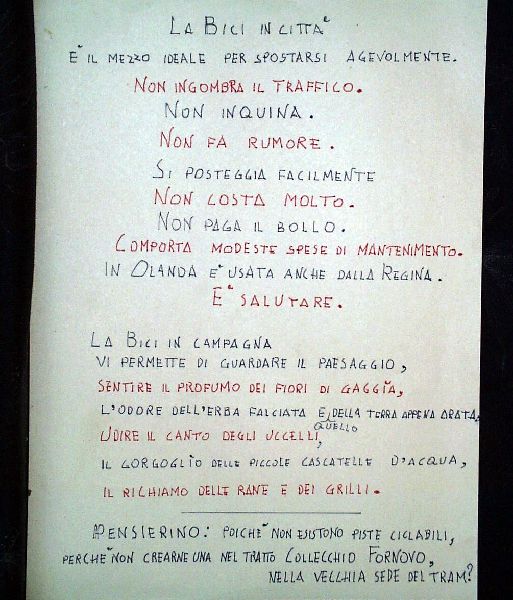 LA BICI IN CITTÀ
È IL MEZZO IDEALE PER SPOSTARSI AGEVOLMENTE.
NON INGOMBRA IL TRAFFICO.
NON INQUINA.
NON FA RUMORE.
SI POSTEGGIA FACILMENTE
NON COSTA MOLTO.
NON PAGA IL BOLLO.
COMPORTA MODESTE SPESE DI MANTENIMENTO.
IN OLANDA È USATA ANCHE DALLA REGINA.
È SALUTARE.
LA BICI IN CAMPAGNA
VI PERMETTE DI GUARDARE IL PAESAGGIO,
SENTIRE IL PROFUMO DEI FIORI DI GAGGÌA,
L'ODORE DELL'ERBA FALCIATA E QUELLO DELLA TERRA APPENA ARATA,
UDIRE IL CANTO DEGLI UCCELLI,
IL GORGOGLIO DELLE PICCOLE CASCATELLE D'ACQUA,
IL RICHIAMO DELLE RANE E DEI GRILLI.
PENSIERINO: POICHÈ NON ESISTONO PISTE CICLABILI,
PERCHÈ NON CREARNE UNA NEL TRATTO COLLECCHIO FORNOVO,
NELLA VECCHIA SEDE DEL TRAM?